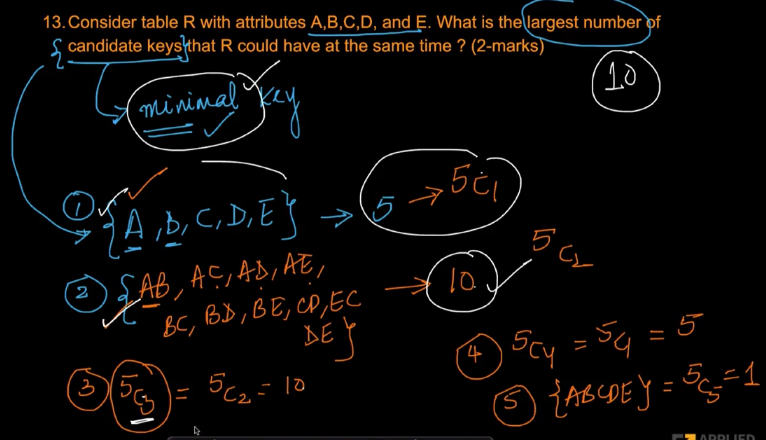 13. Consider table R with attributes A,B,C,D, and E. What is the largest number of
{candidate keys} that R could have at the same time ? (2-marks)
10
minimal key
① {A, B, C, D, E} → 5 → 5C1
② {AB, AC, AD, AE, → 10 5C2
BC, BD, BE, CD, EC
DE}
③ 5C3 = 5C2 = 10
④ 5C4 = 5C1 = 5
⑤ {ABCDE} = 5C5 = 1
APPLIED